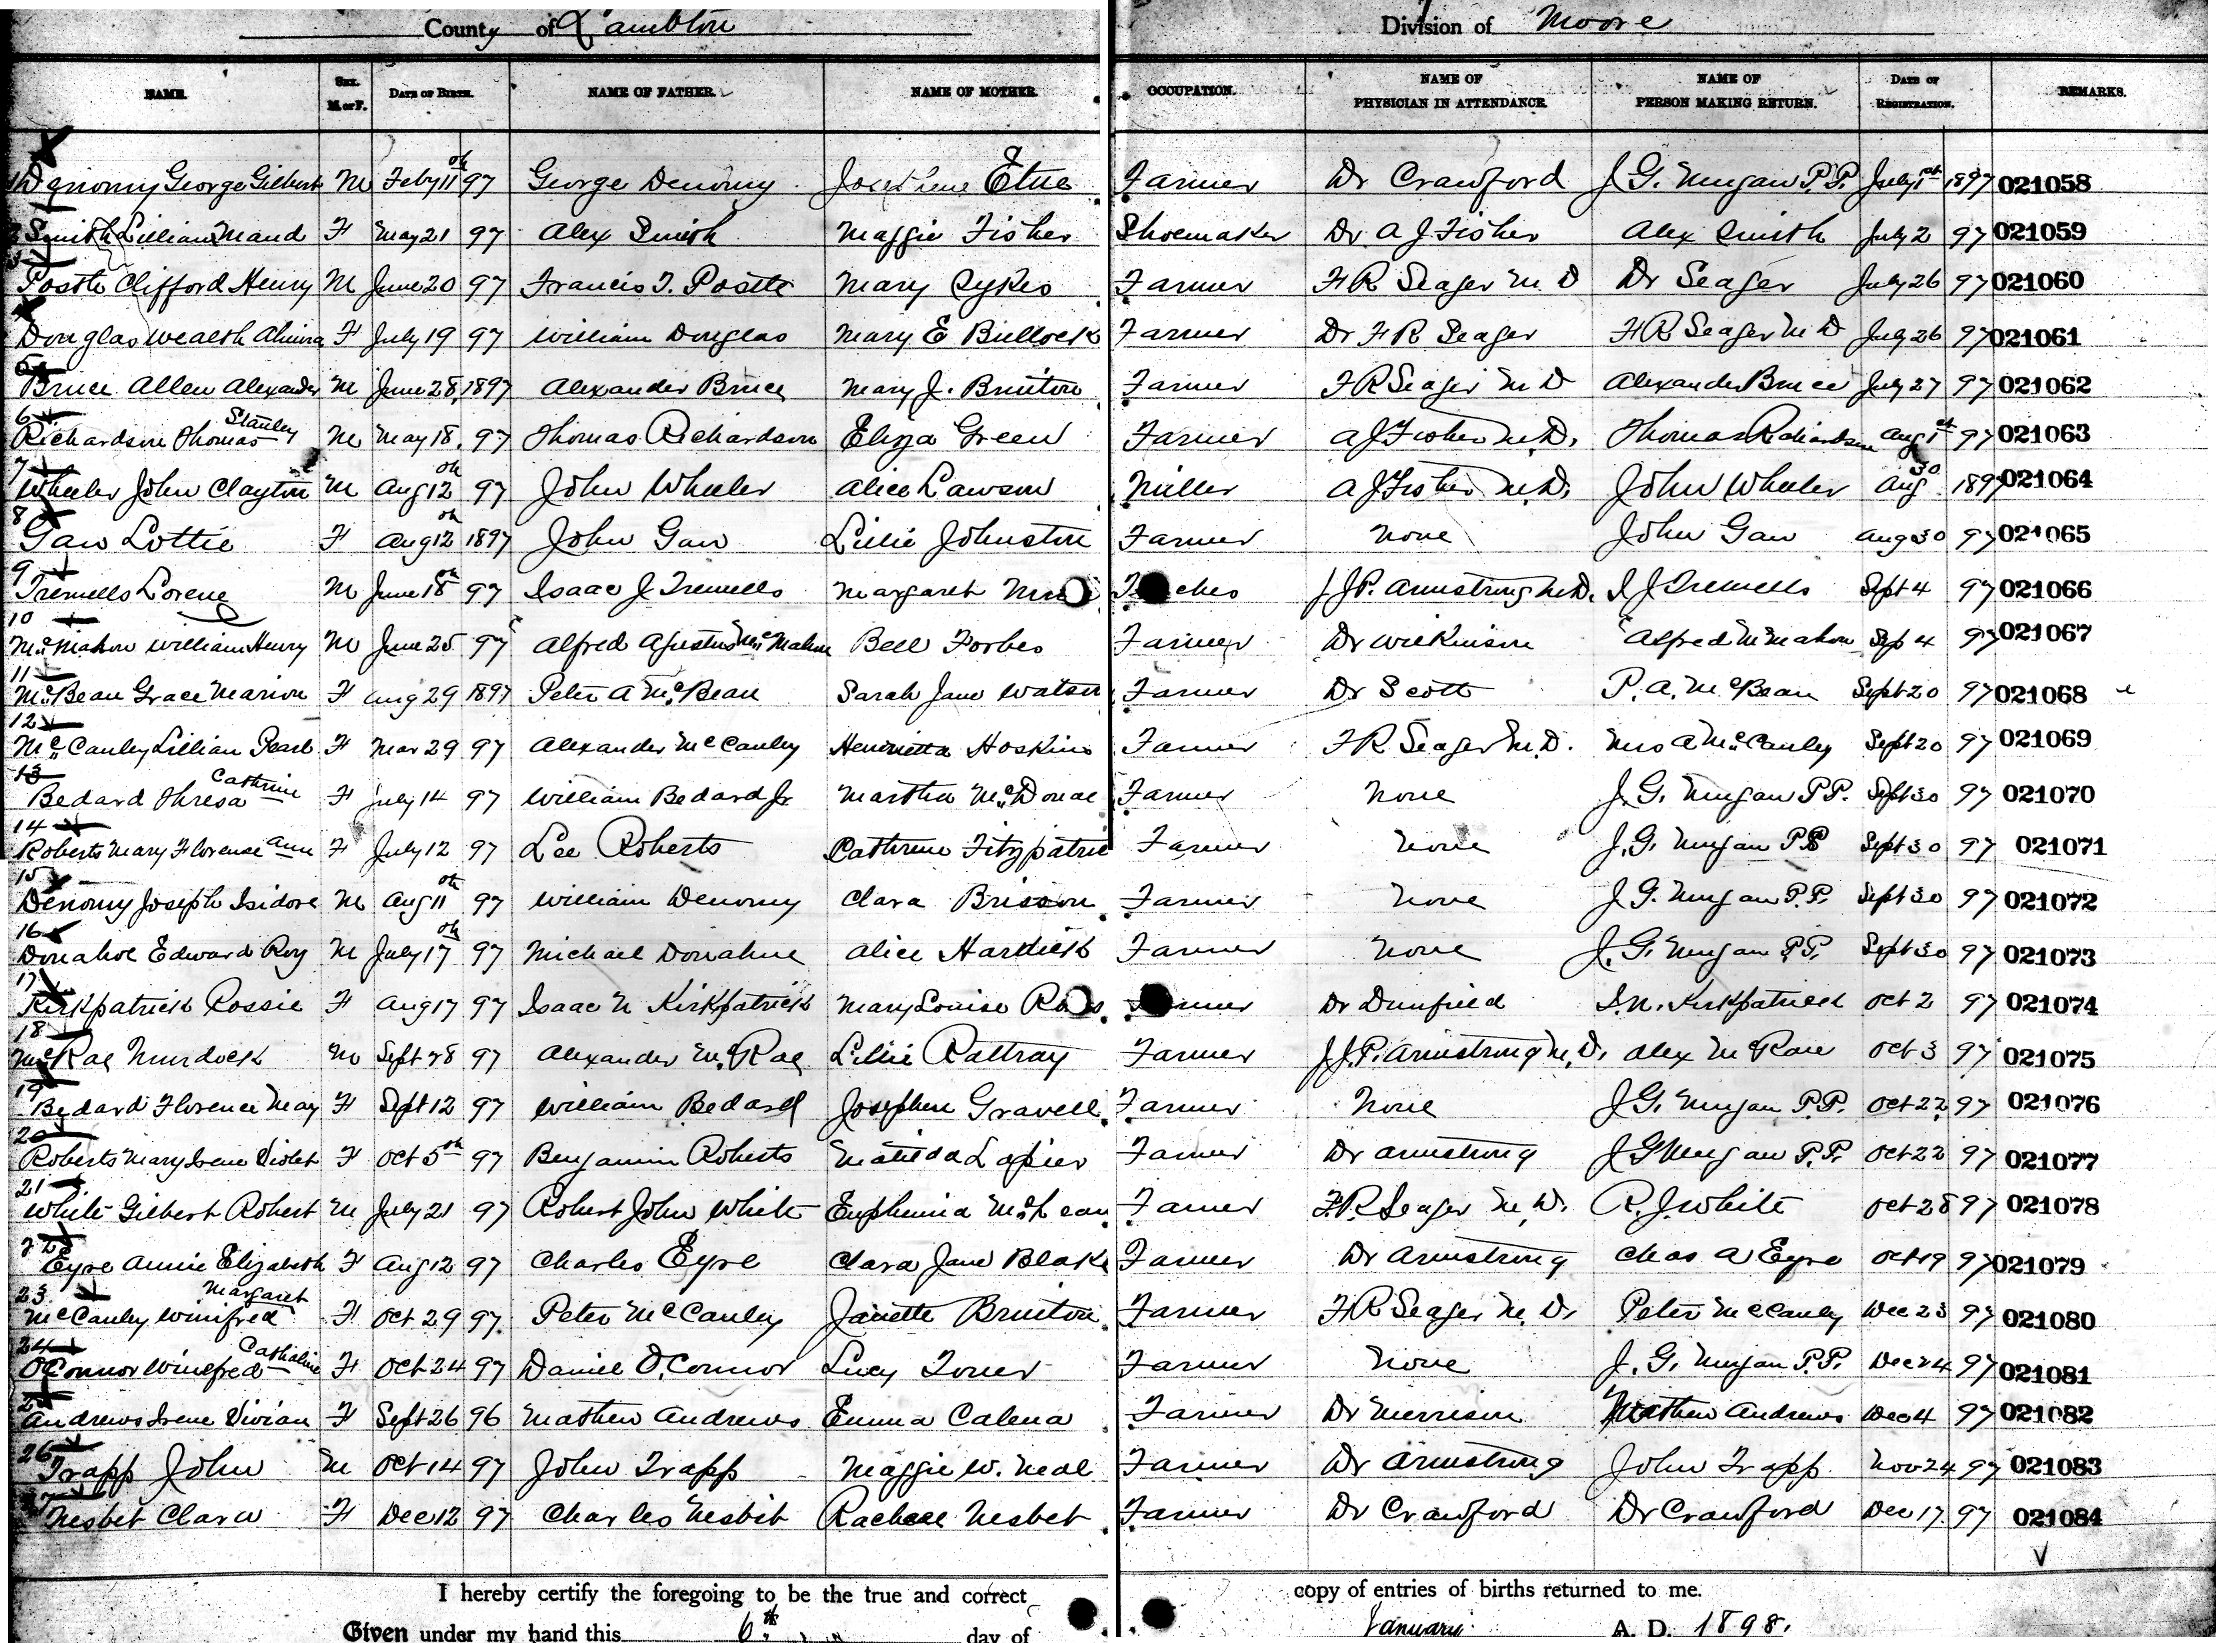 County of Lambton Division of Moore
NAME. SEX. M. or F. DATE OF BIRTH. NAME OF FATHER. NAME OF MOTHER. OCCUPATION. NAME OF PHYSICIAN IN ATTENDANCE. NAME OF PERSON MAKING RETURN. DATE OF REGISTRATION. REMARKS.
Denomy George Gilbert M Feby 11th 97 George Denomy Josephene Etue Farmer Dr Crawford J. G. Mugan P.P. July 1st 1897 021058
Smith Lillian Maud F May 21 97 Alex Smith Maggie Fisher Shoemaker Dr A J Fisher Alex Smith July 2 97 021059
Postte Clifford Henry M June 20 97 Francis T. Postte Mary Sykes Farmer F R Seager M D Dr Seager July 26 97 021060
Douglas Wealth F July 19 97 William Douglas Mary E Bullock Farmer Dr F R Seager F R Seager M D July 26 97 021061
5 Bruce Allen Alexander M June 28, 1897 Alexander Bruce Mary J. Brunton Farmer F R Seager M D Alexander Bruce July 27 97 021062
6 Richardson Thomas Stanley M May 18. 97 Thomas Richardson Eliza Green Farmer A J Fisher M.D. Thomas Richardson Aug 1st 97 021063
7 Wheeler John Clayton M Aug 12th 97 John Wheeler Alice Lawson Miller A J Fisher M.D. John Wheeler Aug 30 1897 021064
8 Gaw Lottie F Aug 12th 1897 John Gaw Lillie Johnston Farmer None John Gaw Aug 30 97 021065
9 Tremells Lorene M June 18th 97 Isaac J Tremells Margaret J. J. P. Armstrong M.D. I J Tremells Sept 4 97 021066
10 McMahon William Henry M June 25 97 Alfred Agustus McMahon Bell Forbes Farmer Dr Wilkinson Alfred McMahon Sep 4 97 021067
11 McBean Grace Marion F Aug 29 1897 Peter A McBean Sarah Jane Watson Farmer Dr Scott P. A. McBean Sept 20 97 021068
12 McCauley Lillian Pearl F Mar 29 97 Alexander McCauley Henrietta Hoskins Farmer F R Seager M.D. Mrs A McCauley Sept 20 97 021069
13 Bedard Thresa Cathrine F July 14 97 William Bedard Jr Martha Farmer None J. G. Mugan P.P. Sept 30 97 021070
14 Roberts Mary Florence Ann F July 12 97 Lee Roberts Cathrene Farmer None J. G. Mugan P.P. Sept 30 97 021071
15 Denomy Joseph Isidore M Aug 11th 97 William Denomy Clara Brisson Farmer None J. G. Mugan P.P. Sept 30 97 021072
16 Donahoe Edward Roy M July 17th 97 Michael Donahue Alice Hardick Farmer None J. G. Mugan P.P. Sept 30 97 021073
17 Kirkpatrick Rossie F Aug 17 97 Isaac N Kirkpatrick Mary Louise Farmer Dr Dunfield I. N. Kirkpatrick Oct 2 97 021074
18 McRae Murdock M Sept 28 97 Alexander McRae Lillie Rattray Farmer J. J. P. Armstrong M.D. Alex McRae Oct 3 97 021075
19 Bedard Florence May F Sept 12 97 William Bedard Josephene Gravell Farmer None J. G. Mugan P.P. Oct 22 97 021076
20 Roberts Mary Irene Violet F Oct 5th 97 Benjamin Roberts Matilda Lapier Farmer Dr Armstrong J G Mugan P.P. Oct 22 97 021077
21 White Gilbert Robert M July 21 97 Robert John White Euphemia McLean Farmer F. R. Seager M.D. R. J. White Oct 28 97 021078
22 Eyre Annie Elizabeth F Aug 12 97 Charles Eyre Clara Jane Blake Farmer Dr Armstrong Chas A Eyre Oct 19 97 021079
23 McCauley Winifred Margaret F Oct 29 97 Peter McCauley Janette Brunton Farmer F R Seager M.D. Peter McCauley Dec 23 97 021080
24 OConnor Winefred F Oct 24 97 Daniel O.Connor Lucy Toner Farmer None J. G. Mugan P.P. Dec 24 97 021081
25 Andrews Irene Vivian F Sept 26 96 Mathew Andrews Emma Calena Farmer Dr Merrison Mathew Andrews Dec 4 97 021082
26 Trapp John M Oct 14 97 John Trapp Maggie W. Neal Farmer Dr Armstrong John Trapp Nov 24 97 021083
27 Nesbit Clara F Dec 12 97 Charles Nesbit Rachell Nesbet Farmer Dr Crawford Dr Crawford Dec 17 97 021084
I hereby certify the foregoing to be the true and correct copy of entries of births returned to me.
Given under my hand this 6th day of January A. D. 1898.